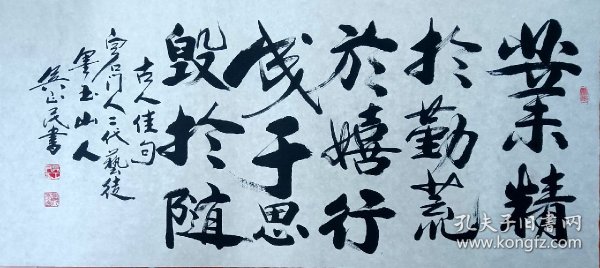 業精
於勤荒
於嬉行
成于思
毀於随
古人佳句
石门人二代藝徒
墨玉山人
吴正民書
孔夫子旧书网
www.kongfz.com